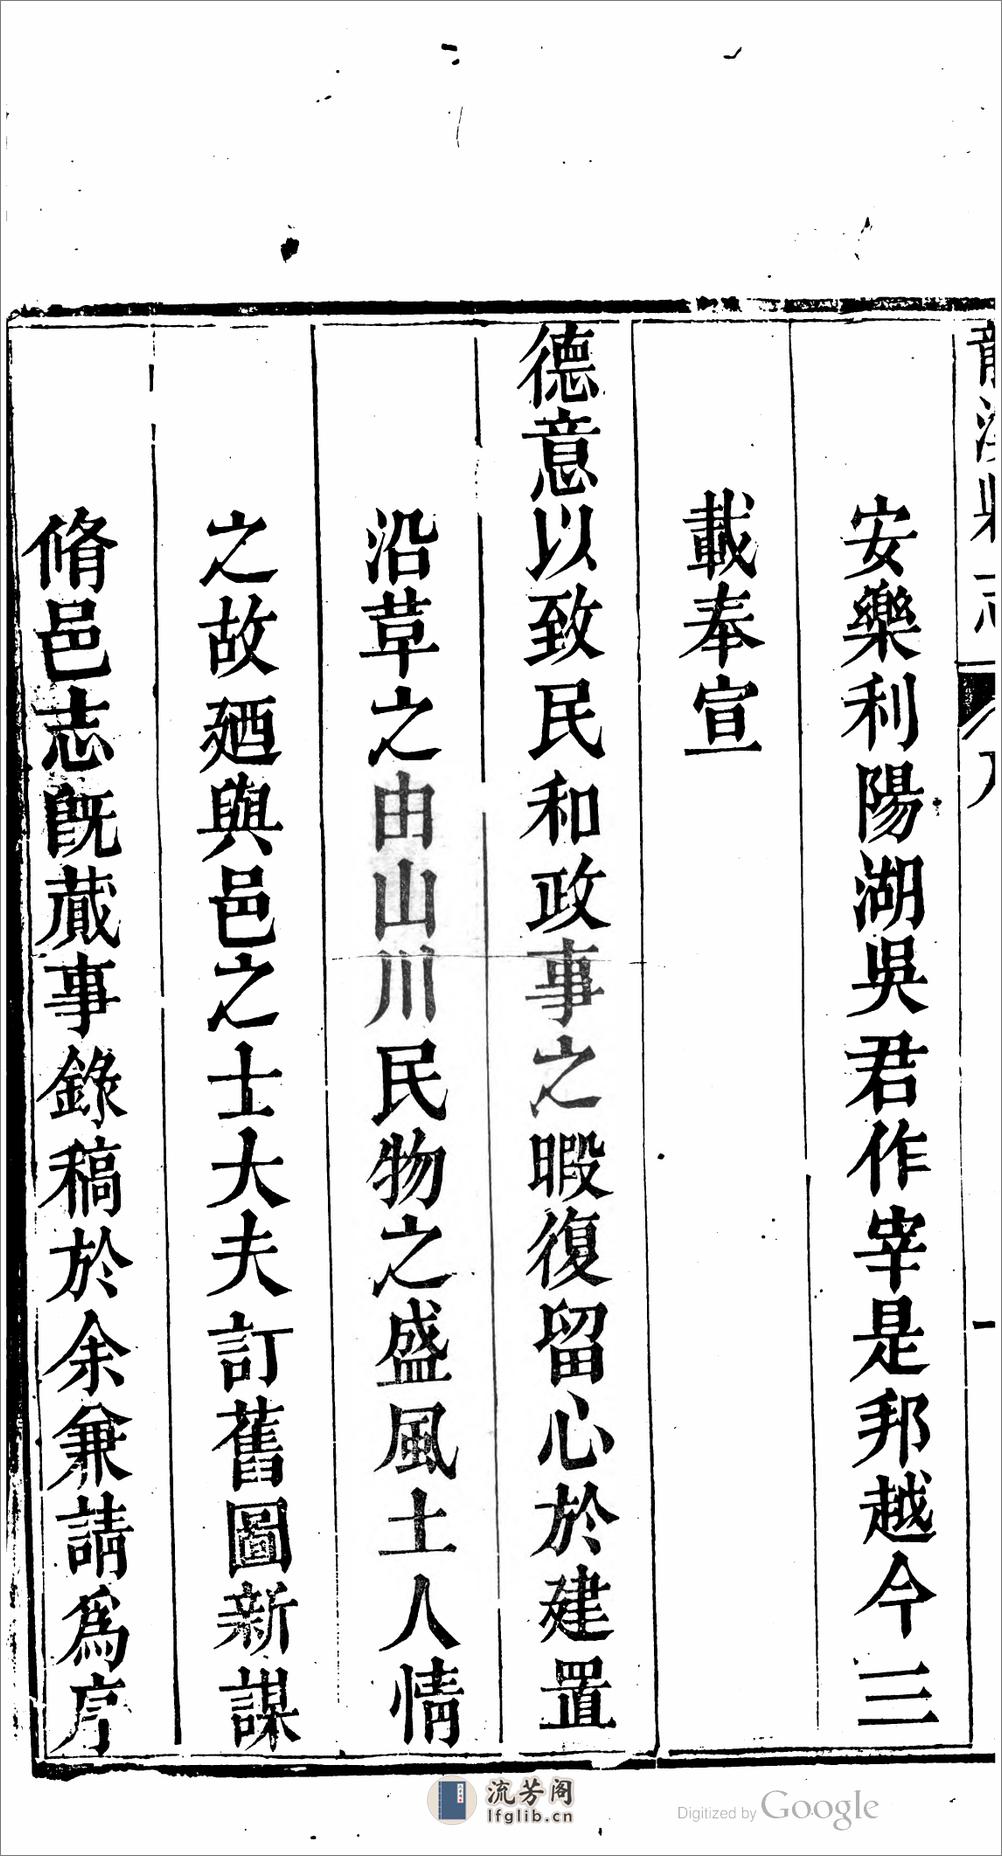 安樂利陽湖吳君作宰是邦越今三
載奉宣
德意以致民和政事之暇復留心於建置
沿革之由山川民物之盛風土人情
之故廼與邑之士大夫訂舊圖新謀
脩邑志旣蕆事錄稿於余兼請爲序
流芳阁
lfglib.cn
Digitized by Google